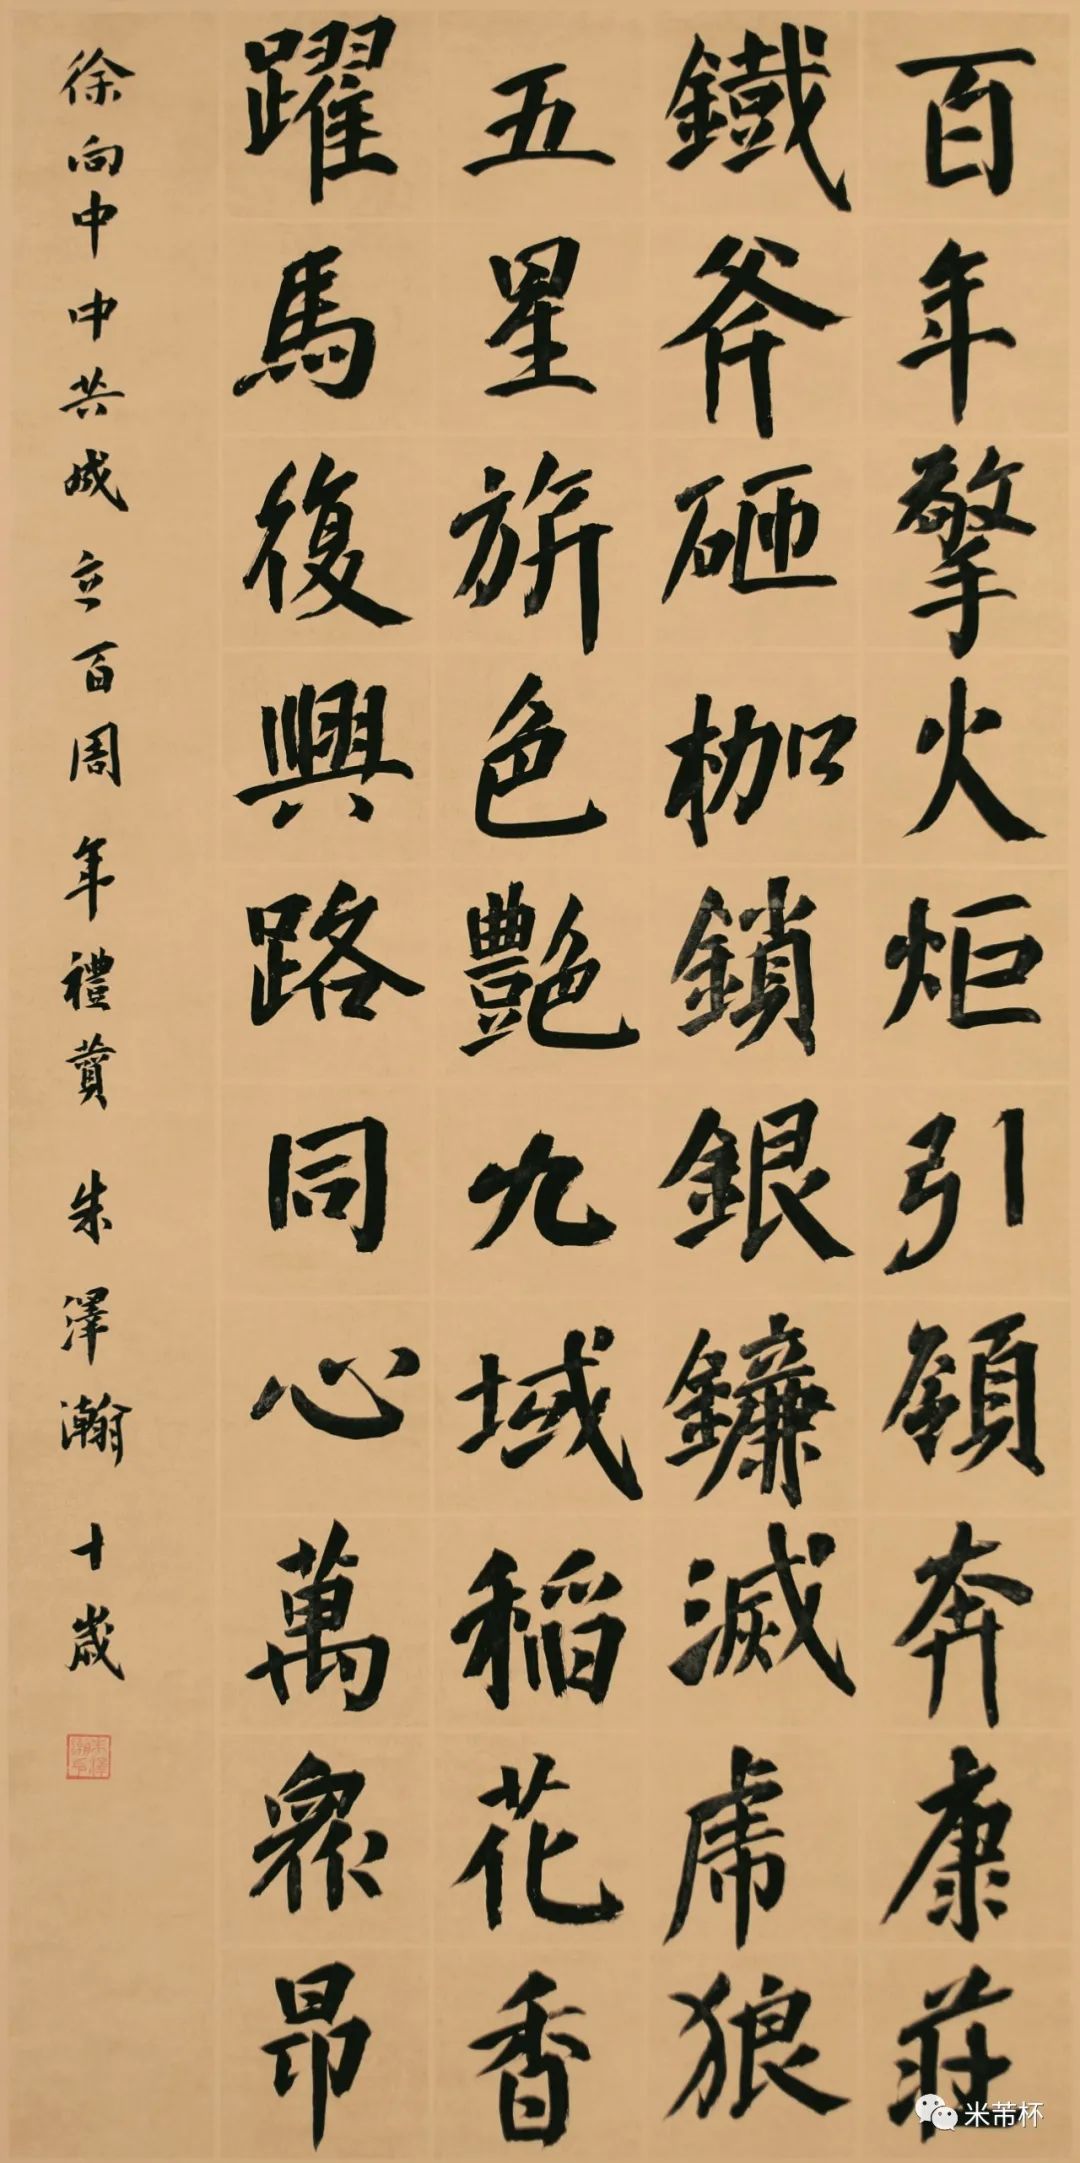 百年擎火炬引領奔康莊
鐵斧砸枷鎖銀鐮滅虎狼
五星旂色艷九域稻花香
躍馬復興路同心萬眾昂
徐向中中共成立百周年禮贊 朱澤瀚 十歲
米芾杯